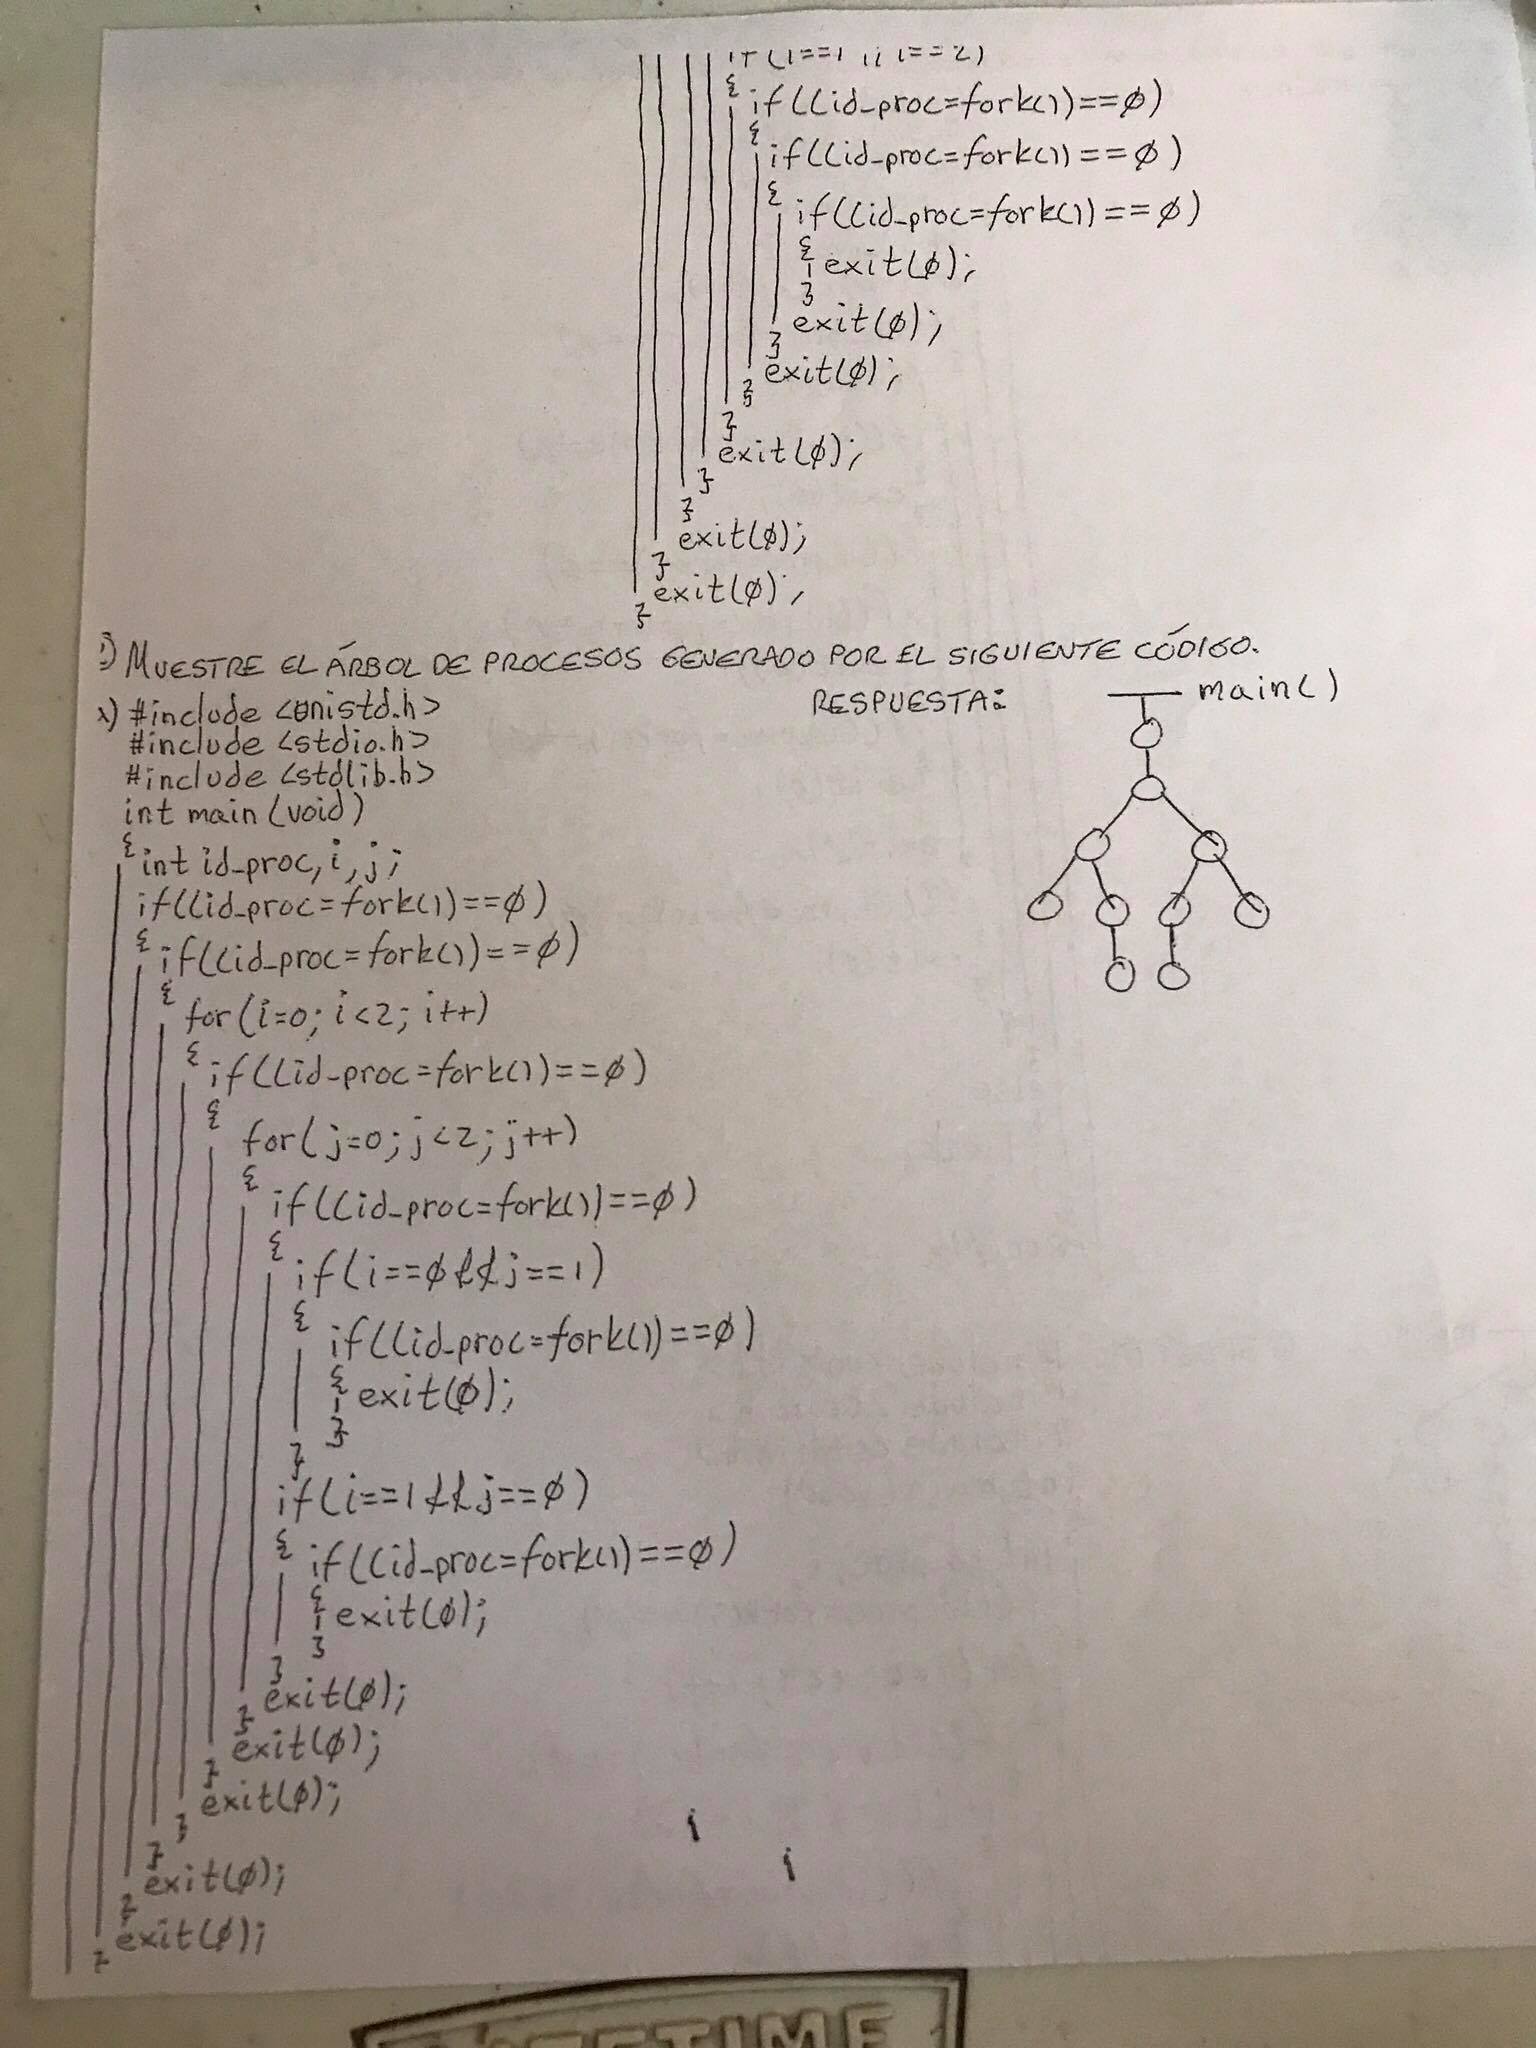 if(i==1 || i==2)
{ if((id_proc=fork())==Ø)
{ if((id_proc=fork())==Ø)
{ if((id_proc=fork())==Ø)
{ exit(Ø);
}
exit(Ø);
}
exit(Ø);
}
}
exit(Ø);
}
}
exit(Ø);
}
exit(Ø);
}
i) MUESTRE EL ÁRBOL DE PROCESOS GENERADO POR EL SIGUIENTE CÓDIGO.
RESPUESTA: main()
x) #include <unistd.h>
#include <stdio.h>
#include <stdlib.h>
int main (void)
{ int id_proc, i, j;
if((id_proc=fork())==Ø)
{ if((id_proc=fork())==Ø)
{
for(i=0; i<2; i++)
{ if((id_proc=fork())==Ø)
{
for(j=0; j<2; j++)
{
if((id_proc=fork())==Ø)
{
if(i==Ø && j==1)
{
if((id_proc=fork())==Ø)
{ exit(Ø);
}
}
if(i==1 && j==Ø)
{ if((id_proc=fork())==Ø)
{ exit(Ø);
}
}
exit(Ø);
}
exit(Ø);
}
exit(Ø);
}
}
exit(Ø);
}
exit(Ø);
}